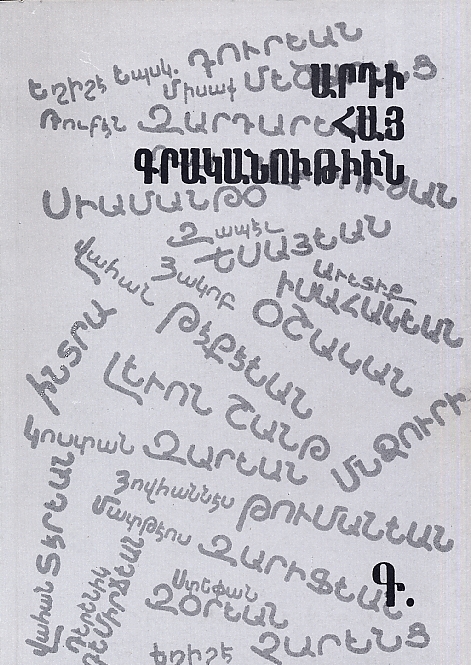 ԱՐԴԻ
ՀԱՅ
ԳՐԱԿԱՆՈՒԹԻՒՆ
Եղիշէ Եպսկ. ԴՈՒՐԵԱՆ
Միսաք
Ռուբէն ԶԱՐԴԱՐԵԱՆ
ՍԻԱՄԱՆԹՕ
Զապէլ
ԵՍԱՅԵԱՆ
Աւետիք
ԻՍԱՀԱԿԵԱՆ
Վահան
ԹԷՔԷԵԱՆ
Յակոբ
ՕՇԱԿԱՆ
ԻՆՏՐԱ
ԼԵՒՈՆ ՇԱՆԹ
ՄՆՁՈՒՐԻ
Կոստան ԶԱՐԵԱՆ
Յովհաննէս ԹՈՒՄԱՆԵԱՆ
Մատթէոս ԶԱՐԻՖԵԱՆ
Վահան ՏԷՐԵԱՆ
ԴԷՐԵՆԻԿ
ԴԵՄԻՐՃԵԱՆ
Ստեփան
ԶՕՐԵԱՆ
Եղիշէ ՉԱՐԵՆՑ
Գ.